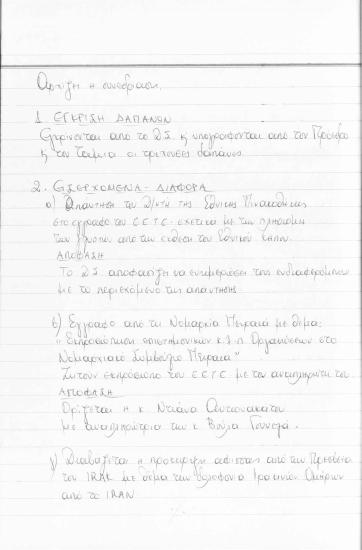 Αρχίζει η συνεδρίαση.
1. ΕΓΚΡΙΣΗ ΔΑΠΑΝΩΝ
Εγκρίνονται από το Δ.Σ. κ υπογράφονται από τον Πρόεδρο
κ τον Ταμία οι τρέχουσες δαπάνες.
2. ΕΙΣΕΡΧΟΜΕΝΑ - ΔΙΑΦΟΡΑ
α) Απάντηση του Δ/ντή της Εθνικής Πινακοθήκης
στο έγγραφο του ΕΕΤΕ σχετικά με την
των γλυπτών από την έκθεση του Εθνικού Κήπου.
ΑΠΟΦΑΣΗ
Το Δ.Σ. αποφασίζει να ενημερώσει τους ενδιαφερομένους
με το περιεχόμενο της απάντησης.
β) Έγγραφο από τη Νομαρχία Πειραιά με θέμα:
"Εκπροσώπηση επιστημονικών κ.λ.π. Οργανώσεων στο
Νομαρχιακό Συμβούλιο Πειραιά"
Ζητούν εκπρόσωπο του ΕΕΤΕ με τον αναπληρωτή του
ΑΠΟΦΑΣΗ
Ορίζεται η κ. Ντιάνα Αντωνακάτου
με αναπληρώτρια την κ. Βούλα
γ) Διαβάζεται η προκήρυξη από την Πρεσβεία
του ΙΡΑΚ με θέμα την δολοφονία Ιρακινών Ομήρων
από το ΙΡΑΝ